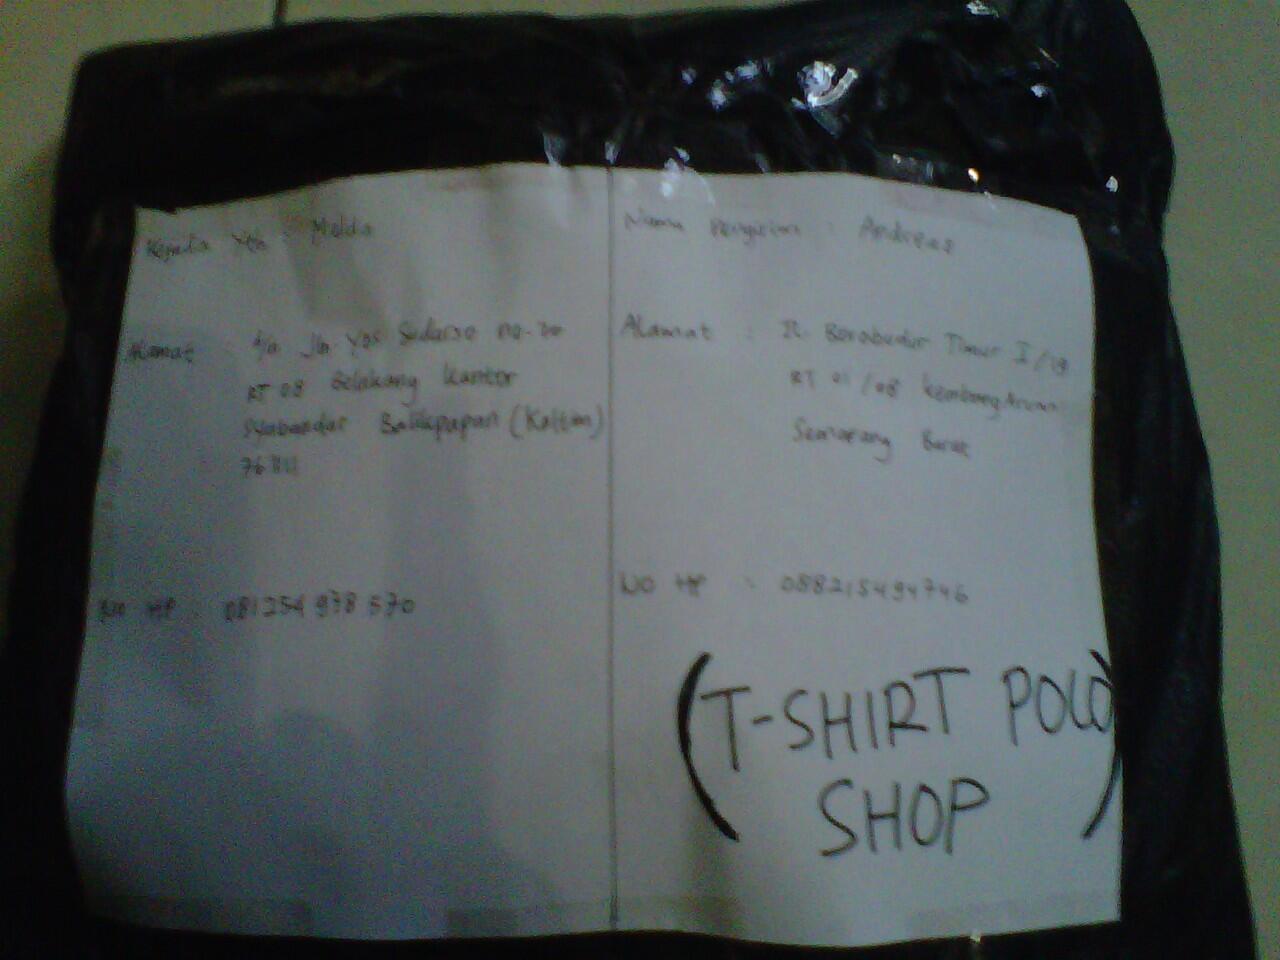 Kepada Yth : Melda
Alamat : d/a Jln Yos Sudarso no-20
RT 08 Belakang Kantor
Syabandar Balikpapan (Kaltim)
76111
No HP : 081254 978 570
Nama Pengirim : Andreas
Alamat : JL. Borobudur Timur I/19
RT 01/08 Kembangarum
Semarang Barat
NO HP : 088215494746
(T-SHIRT POLO
SHOP)